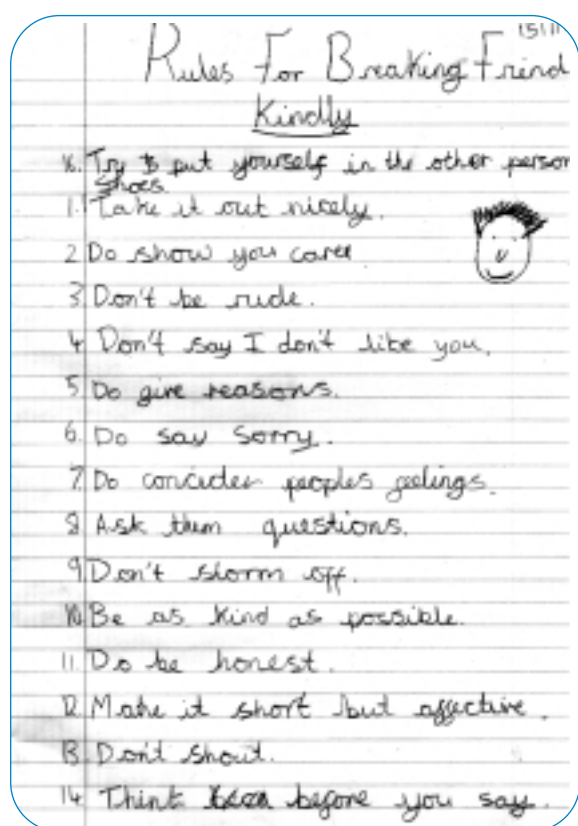 15/11
Rules For Breaking Freind
Kindly
16. Try to put yourself in the other person
shoes.
1. Take it out nicely.
2 Do show you care
3. Don't be rude.
4. Don't say I don't like you.
5 Do give reasons.
6. Do say Sorry.
7. Do concider peoples feelings.
8 Ask them questions.
9 Don't storm off.
10. Be as kind as possible.
11. Do be honest.
12 Make it short but affective.
13. Don't shout.
14 Think before you say.